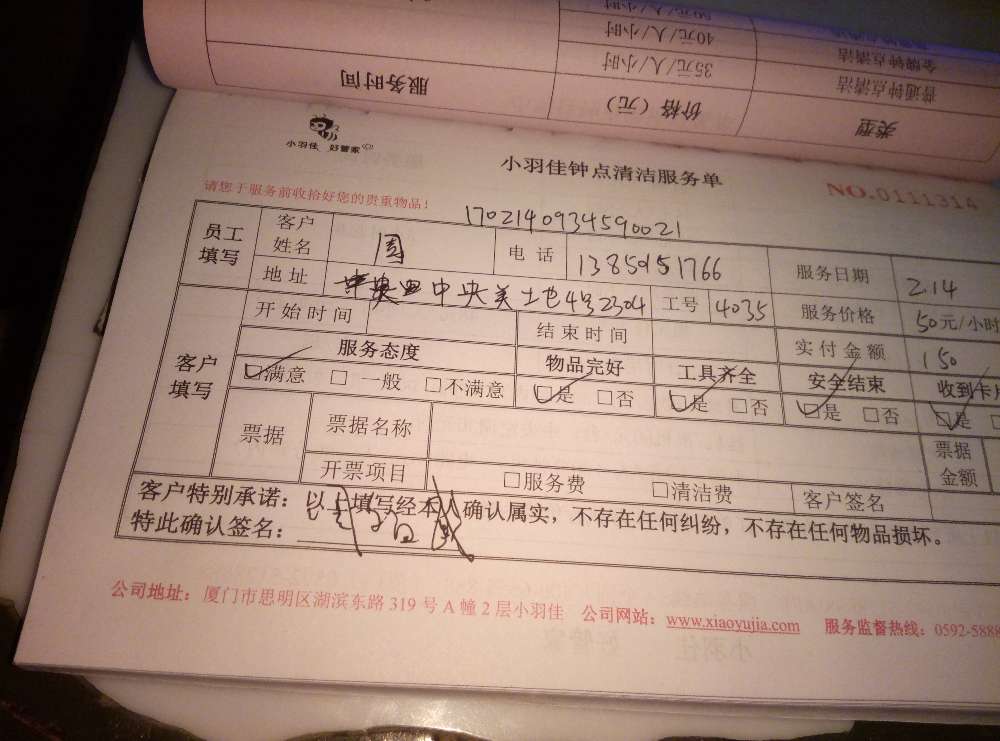 50元/人/小时
金牌钟点清洁 40元/人/小时
普通钟点清洁 35元/人/小时
类型 价格（元） 服务时间
小羽佳 好管家
小羽佳钟点清洁服务单
NO.0111314
请您于服务前收拾好您的贵重物品！
1702140934590021
员工填写 客户姓名 周 电话 1385951766 服务日期 2.14
地址 中央美士尼4号2304 工号 4035 服务价格 50元/小时
客户填写 开始时间 结束时间 实付金额 150
服务态度 物品完好 工具齐全 安全结束 收到卡片
☑满意 □一般 □不满意 ☑是 □否 ☑是 □否 ☑是 □否 ☑是 □
票据 票据名称 票据金额
开票项目 □服务费 □清洁费 客户签名
客户特别承诺：以上填写经本人确认属实，不存在任何纠纷，不存在任何物品损坏。
特此确认签名：
公司地址：厦门市思明区湖滨东路319号A幢2层小羽佳 公司网站：www.xiaoyujia.com 服务监督热线：0592-5888